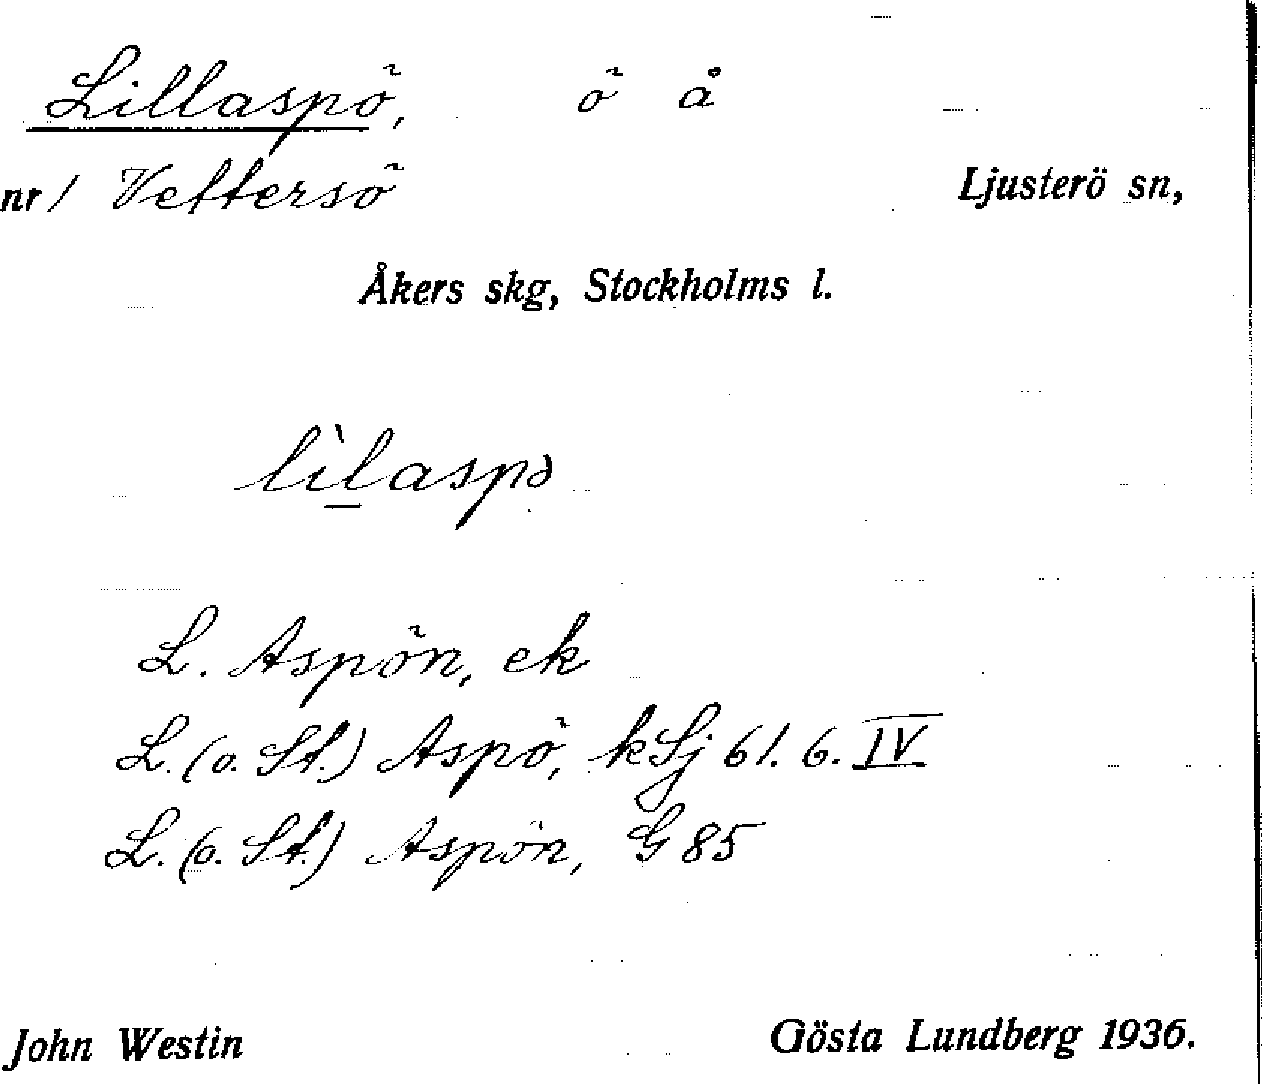 Lillaspö, ö å
nr / Vettersö Ljusterö sn,
Åkers skg, Stockholms l.
lìlaspə
L. Aspön, ek
L. (o. St.) Aspö, kSj 61. 6. IV
L. (o. St.) Aspön, G 85
John Westin Gösta Lundberg 1936.